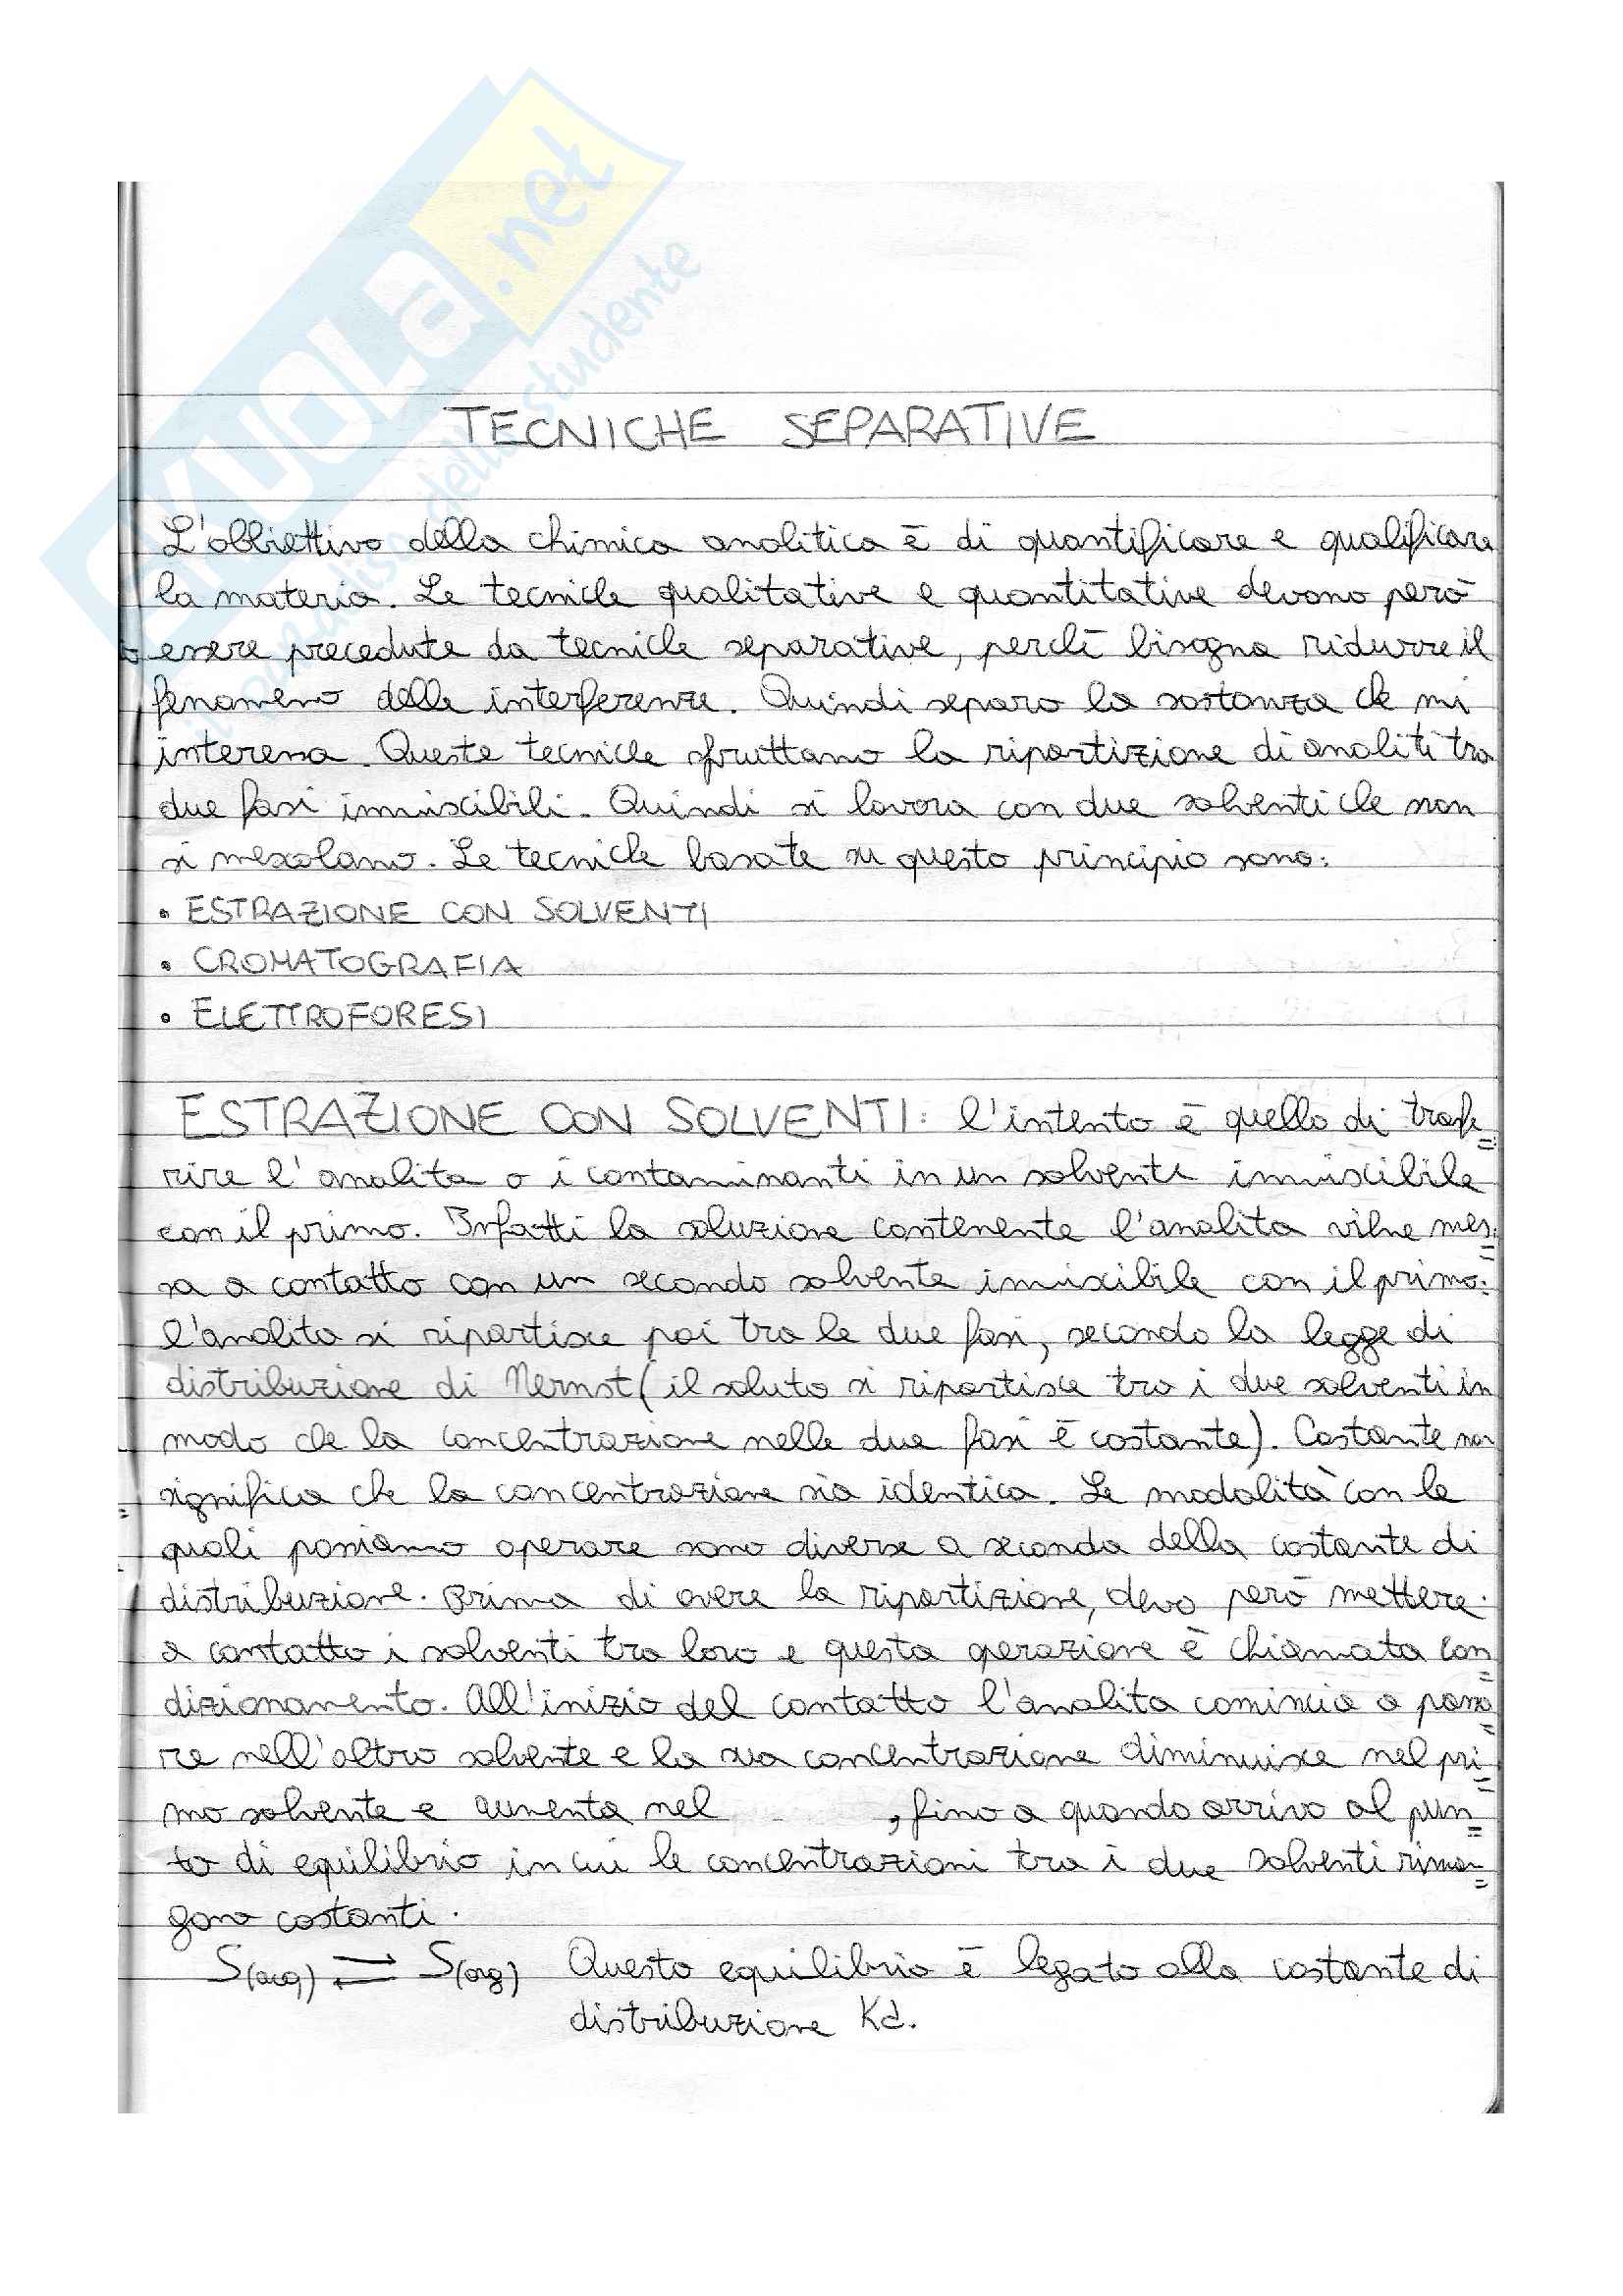 SKUOLA.net
TECNICHE SEPARATIVE
L'obbiettivo della chimica analitica è di quantificare e qualificare
la materia. Le tecniche qualitative e quantitative devono però
essere precedute da tecniche separative, perchè bisogna ridurre il
fenomeno delle interferenze. Quindi separo la sostanza che mi
interessa. Queste tecniche sfruttano la ripartizione di analiti tra
due fasi immiscibili. Quindi si lavora con due solventi che non
si mescolano. Le tecniche basate su questo principio sono:
• ESTRAZIONE CON SOLVENTI
• CROMATOGRAFIA
• ELETTROFORESI
ESTRAZIONE CON SOLVENTI: l'intento è quello di trasfe=
rire l'analita o i contaminanti in un solvente immiscibile
con il primo. Infatti la soluzione contenente l'analita viene mes=
sa a contatto con un secondo solvente immiscibile con il primo:
l'analita si ripartisce poi tra le due fasi, secondo la legge di
distribuzione di Nernst (il soluto si ripartisce tra i due solventi in
modo che la concentrazione nelle due fasi è costante). Costante non
significa che la concentrazione sia identica. Le modalità con le
quali possiamo operare sono diverse a seconda della costante di
distribuzione. Prima di avere la ripartizione, devo però mettere
a contatto i solventi tra loro e questa operazione è chiamata con=
dizionamento. All'inizio del contatto l'analita comincia a passa=
re nell'altro solvente e la sua concentrazione diminuisce nel pri=
mo solvente e aumenta nel , fino a quando arrivo al pun=
to di equilibrio in cui le concentrazioni tra i due solventi riman=
gono costanti.
S(acq) ⇌ S(org) Questo equilibrio è legato alla costante di
distribuzione Kd.